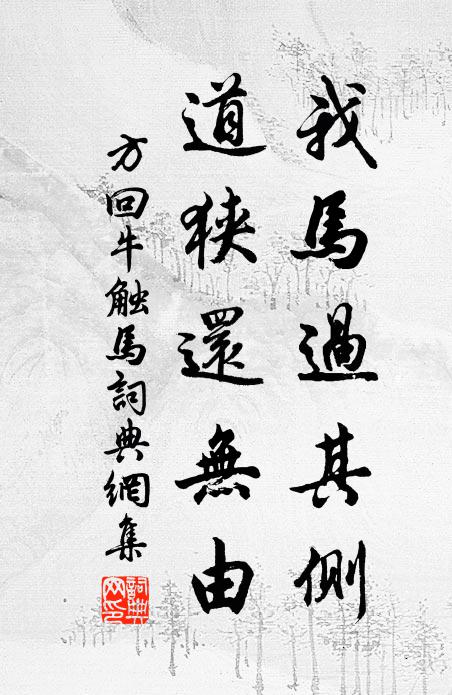 我馬過其側
道狹還無由
方回牛触馬詞典網集
詞典網印